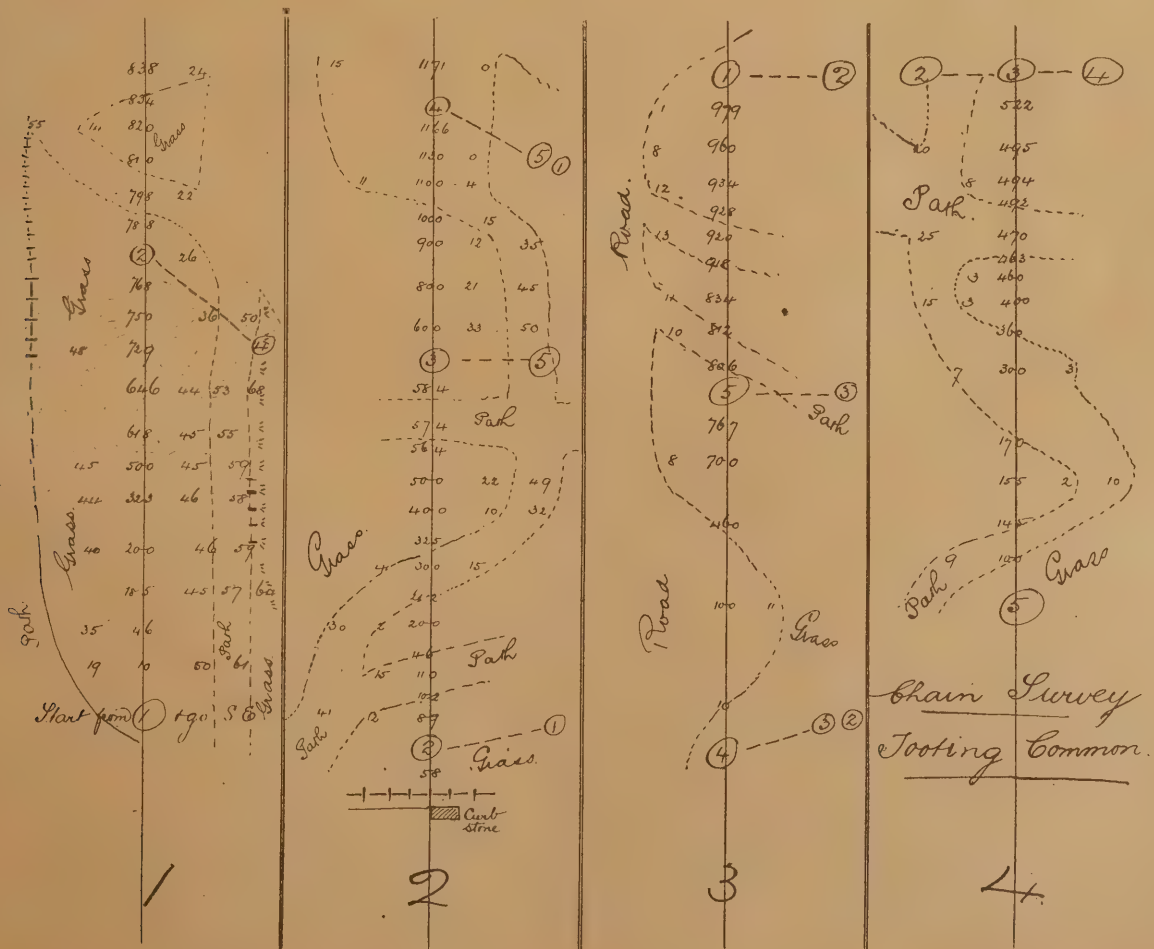 838 24
834
55 111 820
Grass
810
798 22
788
② 26
768
Grass
750 36 50
48 729 ④
646 44 53 68
618 45 55
45 500 45 59
44 323 46 58
Grass
40 200 46 59
185 45 57 60
Path
35 46
Path
19 10 50 61
Grass
Start from ① & go S E
1
15 1171 0
④
1166
⑤ ①
1130 0
11 1100 4
1000 15
900 12 35
800 21 45
600 33 50
③ ⑤
584
Path
574
564
500 22 49
400 10 32
Grass
325
4 300 15
262
30 2 200
46 Path
15 110
102
41 12 89
Path
② ①
Grass
58
Curb
stone
2
① ②
1 979
8 960
12 934
Road.
928
13 920
918
11 834
10 812
806
⑤ ③
Path
767
8 700
460
Road
100 11
Grass
10
④ ③ ②
3
② ③ ④
522
20 495
8 494
Path. 492
25 470
463
3 460
15 3 400
360
7 300 3
170
155 2 10
145
9 100
Path
Grass
⑤
Chain Survey
Tooting Common.
4.